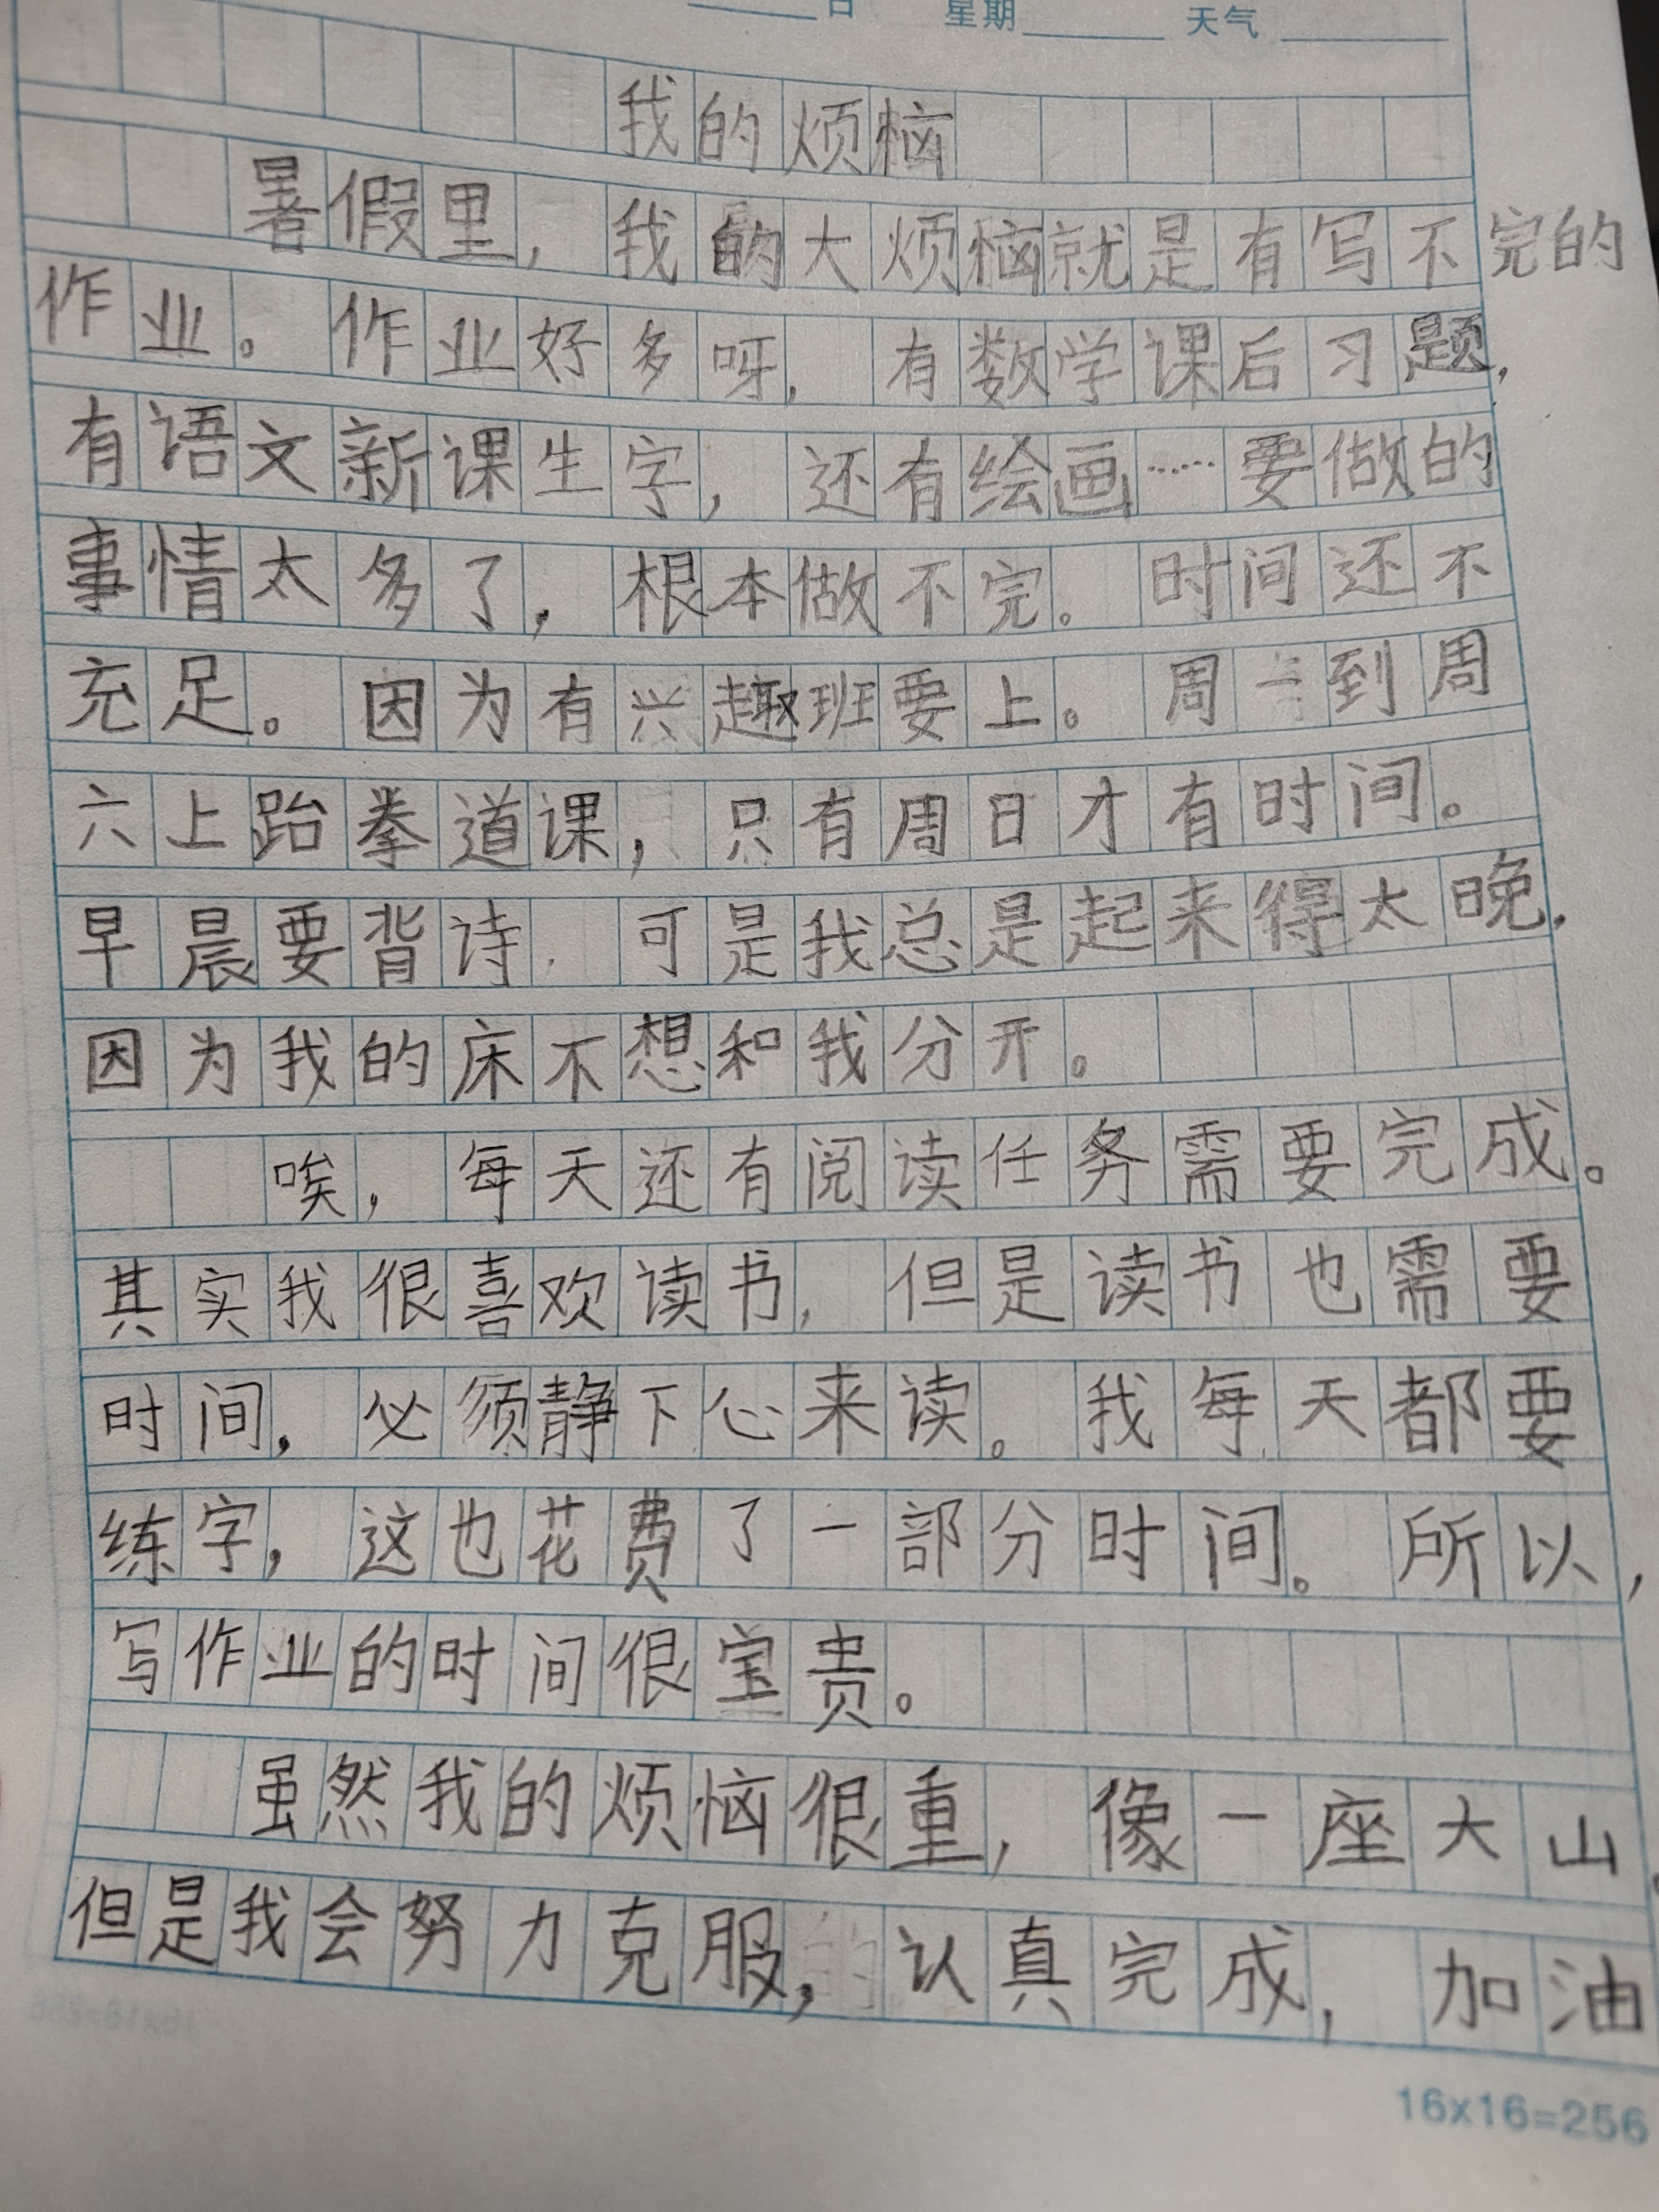 日 星期 天气
我的烦恼
暑假里，我的大烦恼就是有写不完的
作业。作业好多呀，有数学课后习题，
有语文新课生字，还有绘画……要做的
事情太多了，根本做不完。时间还不
充足。因为有兴趣班要上。周二到周
六上跆拳道课，只有周日才有时间。
早晨要背诗，可是我总是起来得太晚，
因为我的床不想和我分开。
唉，每天还有阅读任务需要完成。
其实我很喜欢读书，但是读书也需要
时间，必须静下心来读。我每天都要
练字，这也花费了一部分时间。所以，
写作业的时间很宝贵。
虽然我的烦恼很重，像一座大山，
但是我会努力克服，认真完成，加油
16x16=256